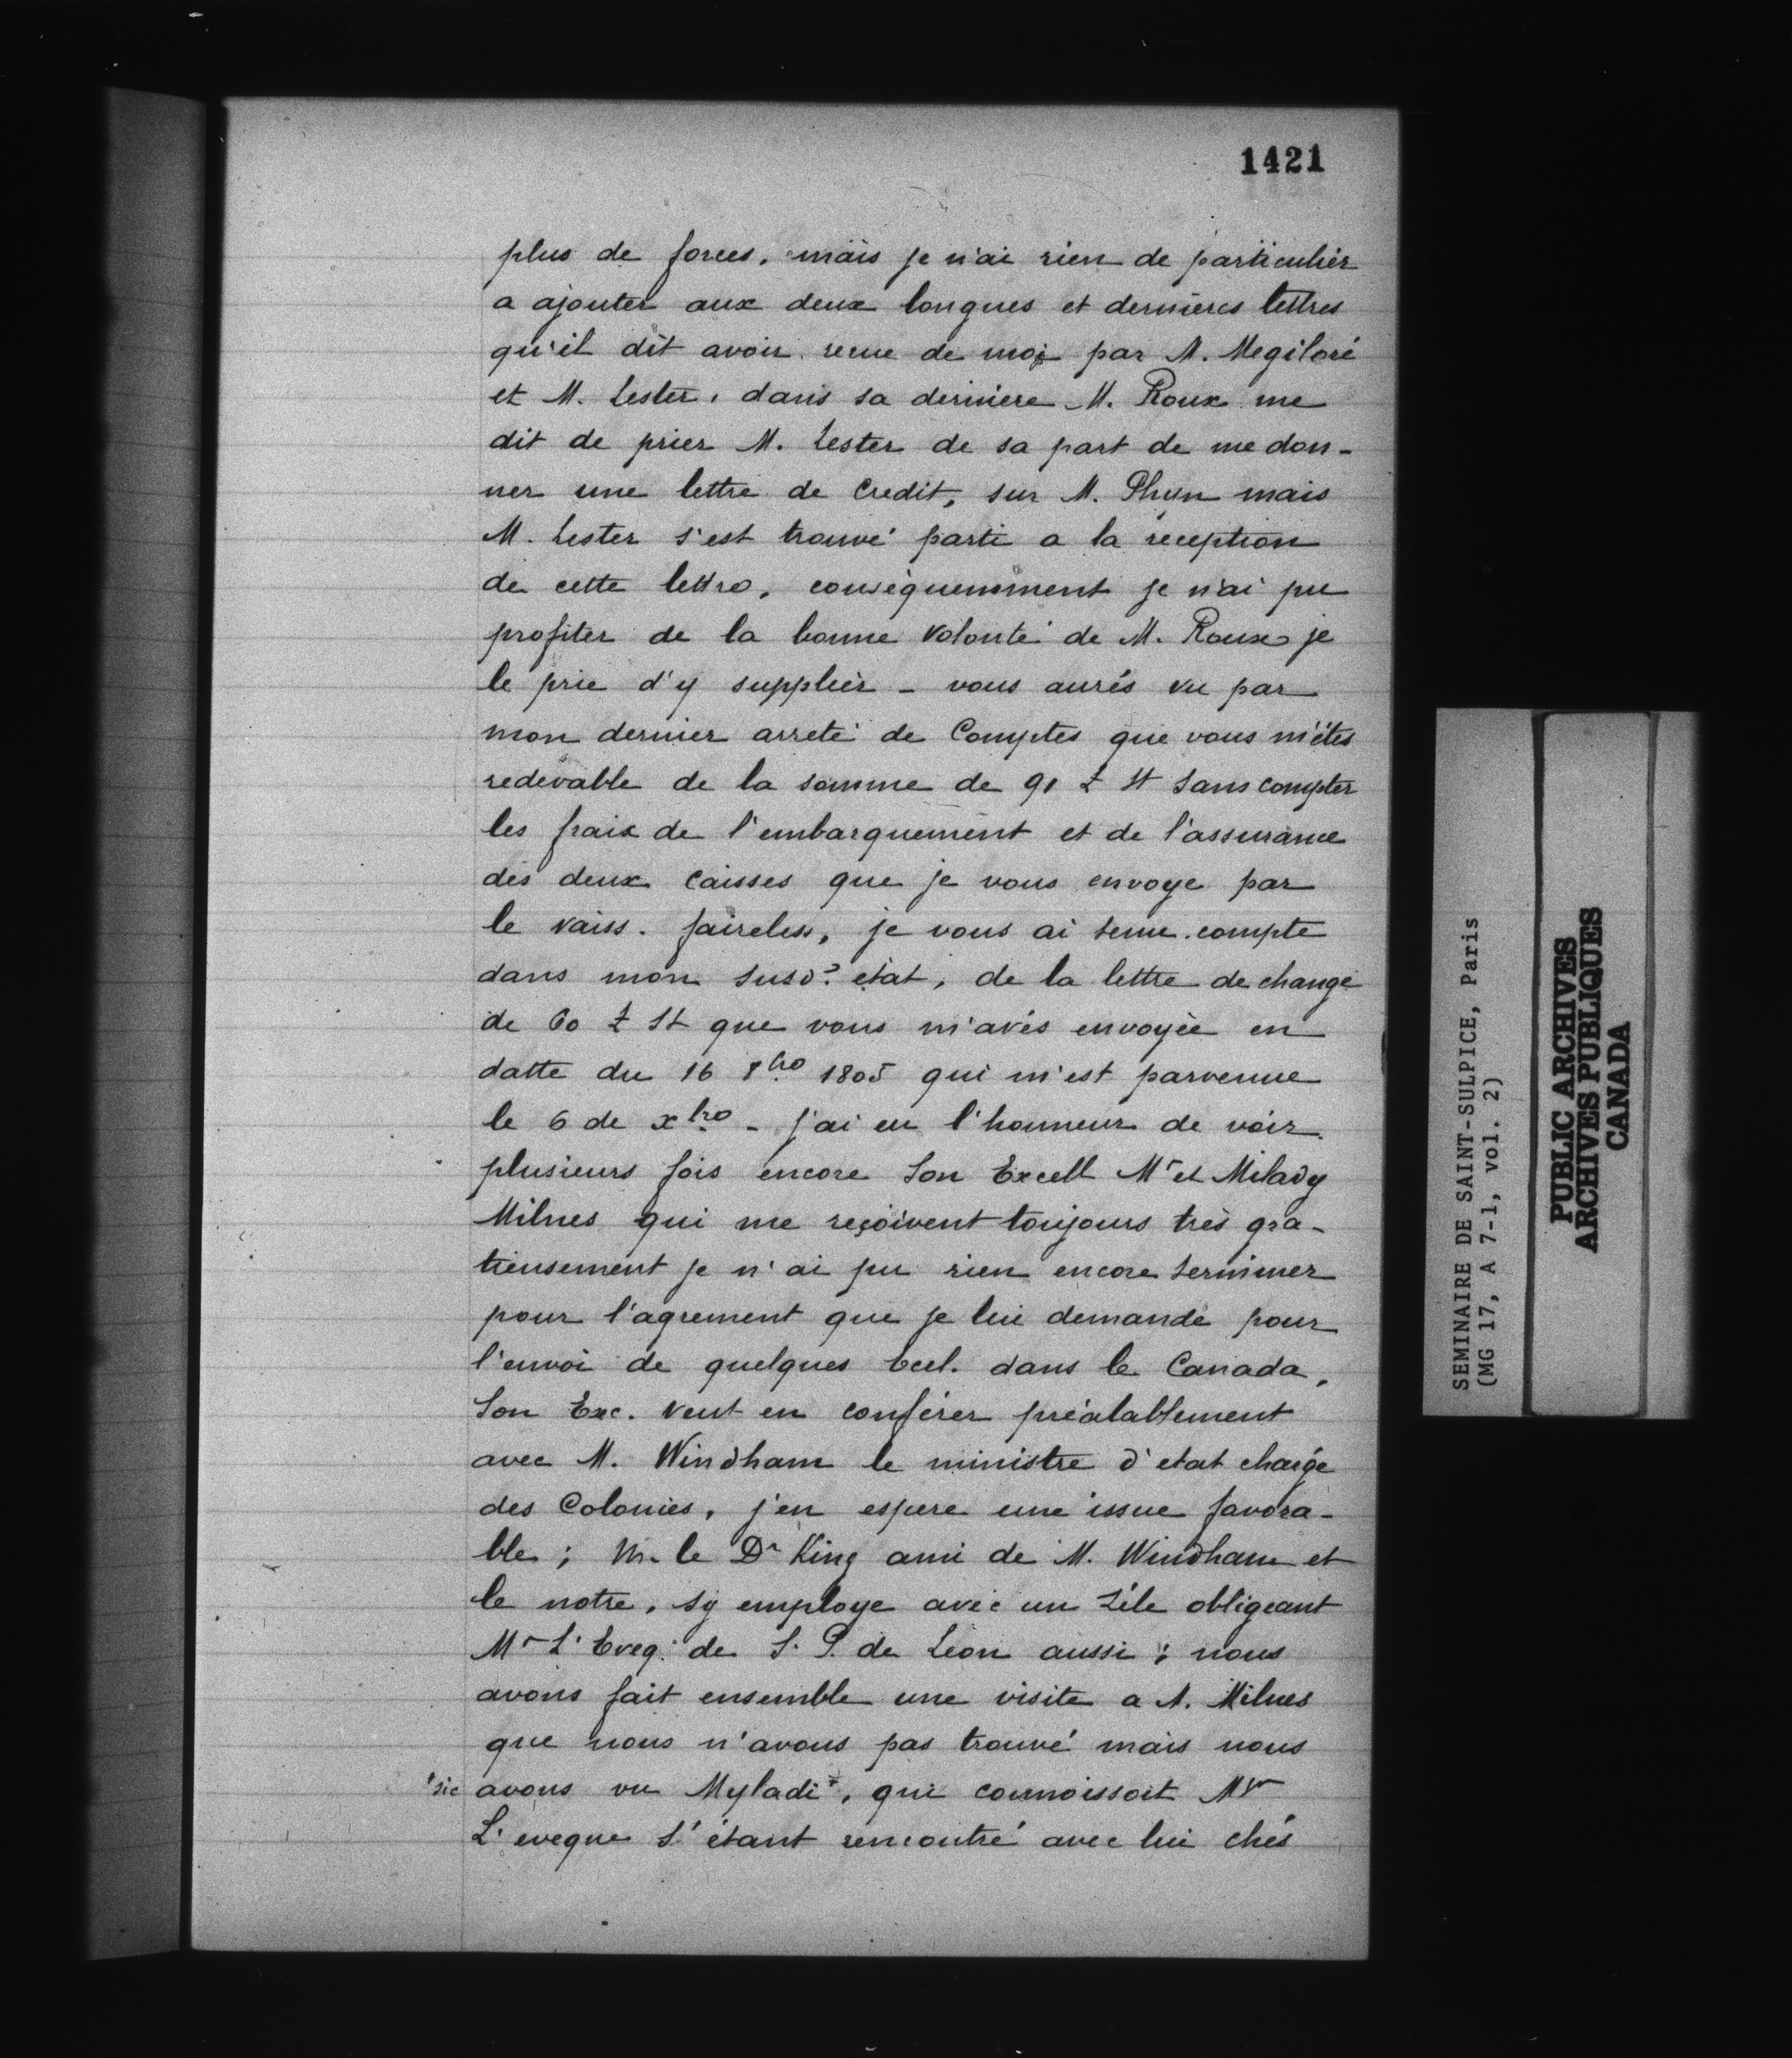 1421
plus de forces. mais je n'ai rien de particulier
a ajouter aux deux longues et dernieres lettres
qu'il dit avoir recue de moi par M. Megiloré
et M. Lester, dans sa derniere M. Roux me
dit de prier M. Lester de sa part de me don-
ner une lettre de Credit, sur M. Phyn mais
M. Lester s'est trouvé parti a la reception
de cette lettre, conséquemment je n'ai pu
profiter de la bonne volonté de M. Roux je
le prie d'y supplier _ vous aurés vu par
mon dernier arreté de Comptes que vous m'étes
redevable de la somme de 91 £ St sans compter
les frais de l'embarquement et de l'assurance
des deux caisses que je vous envoye par
le vaiss. faireless, je vous ai tenu compte
dans mon susd? etat, de la lettre de change
de 60 £ St que vous m'avés envoyée en
datte du 16 8bro 1805 qui m'est parvenue
le 6 de xbro - j'ai eu l'honneur de voir
plusieurs fois encore Son Excell Mr et Milady
Milnes qui me reçoivent toujours très gra-
tieusement je n'ai pu rien encore terminer
pour l'agrement que je lui demande pour
l'envoi de quelques Eccl. dans le Canada,
Son Exc. veut en conférer préalablement
avec M. Windham le ministre d'etat chargé
des Colonies, j'en espere une issue favora-
ble ; M. le Dr King ami de M. Windham et
le notre, sy employe avec un zéle obligeant
Mr L'Eveq. de S. P. de Léon aussi ; nous
avons fait ensemble une visite a M. Milnes
que nous n'avons pas trouvé mais nous
*sic avons vu Myladi*, qui connoissoit Mgr
L'eveque s'étant rencontré avec lui chés
SEMINAIRE DE SAINT-SULPICE, Paris
(MG 17, A 7-1, vol. 2)
PUBLIC ARCHIVES
ARCHIVES PUBLIQUES
CANADA